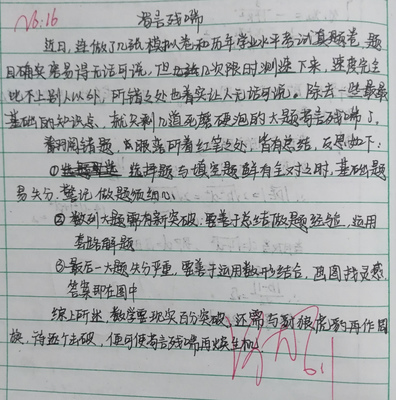 苟言残喘
近日,连做了几张模拟卷和历年学业水平考试真题卷,题
目确实容易得无话可说,但几次限时测速下来,速度完全
比不上别人以外,所错之处也着实让人无话可说。除去一些最最
基础的知识点,就只剩几道死磨硬泡的大题苟言残喘了。
翻阅错题,目照亮所着红笔之处,皆有总结,反思如下:
① 选择题与填空题鲜有全对之时,基础题
易失分,谨记做题须细心。
② 数列大题需有新突破,要善于总结做题经验,运用
套路解题
③ 最后一大题失分严重,要善于运用数形结合,画图找灵感,
答案即在图中
综上所述,数学要现实百分突破,还需与豺狼虎豹再作周
旋,逐个击破,便可使苟言残喘再焕生机。
6.1